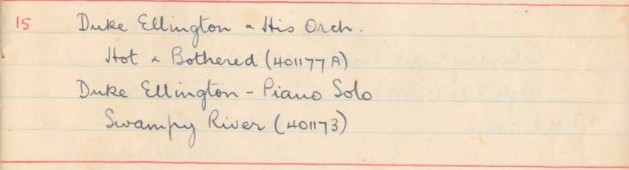 15 Duke Ellington & His Orch.
Hot & Bothered (401177A)
Duke Ellington - Piano Solo
Swampy River (401173)